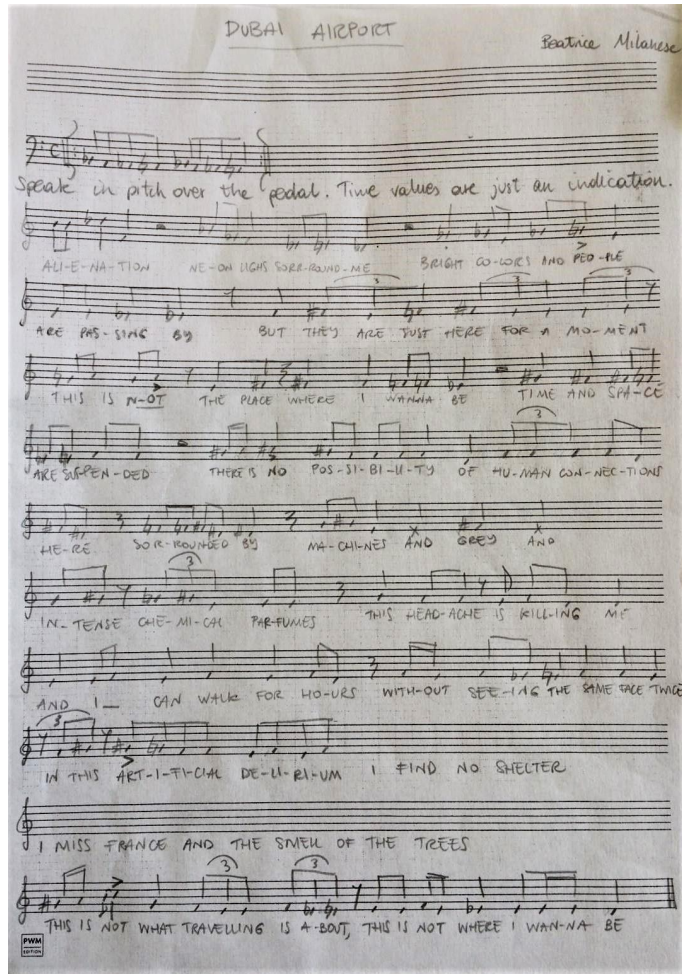 DUBAI AIRPORT
Beatrice Milanese
Speak in pitch over the pedal. Time values are just an indication.
ALI-E-NA-TION NE-ON LIGHS SORR-ROUND-ME BRIGHT CO-LORS AND PEO-PLE
ARE PAS-SING BY BUT THEY ARE JUST HERE FOR A MO-MENT
THIS IS N-OT THE PLACE WHERE I WANNA BE TIME AND SPA-CE
ARE SUSPEN-DED THERE IS NO POS-SI-BI-LI-TY OF HU-MAN CON-NEC-TIONS
HE-RE. SOR-ROUNDED BY MA-CHINES AND GREY AND
IN-TENSE CHE-MI-CAL PAR-FUMES THIS HEAD-ACHE IS KILL-ING ME
AND I_ CAN WALK FOR HO-URS WITH-OUT SEE-ING THE SAME FACE TWICE
IN THIS ART-I-FI-CIAL DE-LI-RI-UM I FIND NO SHELTER
I MISS FRANCE AND THE SMELL OF THE TREES
THIS IS NOT WHAT TRAVELLING IS A-BOUT, THIS IS NOT WHERE I WAN-NA BE
PWM
EDITION